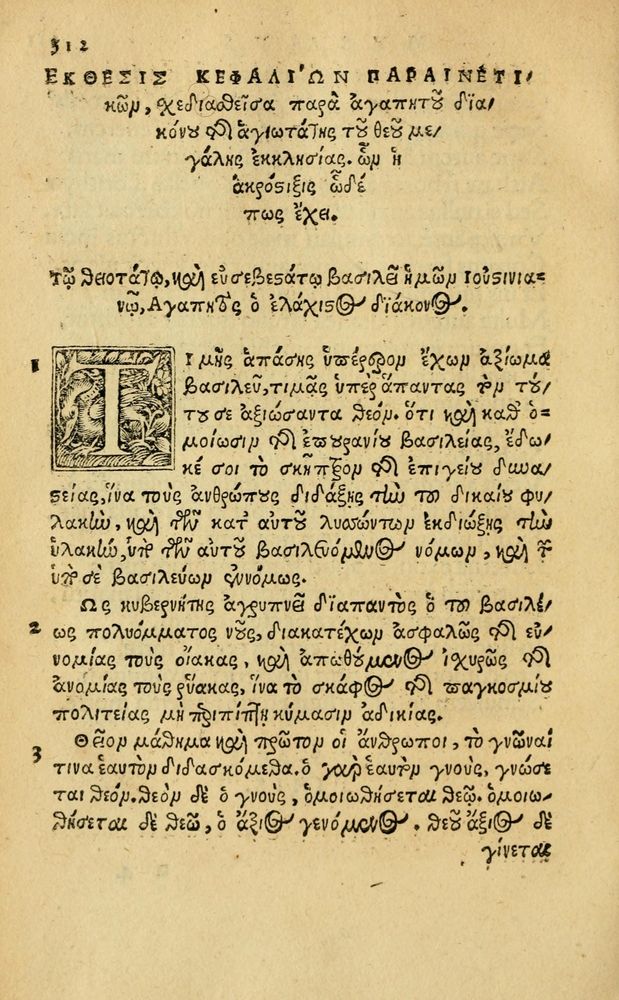 312
ΕΚΘΕΣΙΣ ΚΕΦΑΛΑΙΩΝ ΠΑΡΑΙΝΕΤΙ/
κῶν, σχεδιασθεῖσα παρὰ ἀγαπητοῦ δια/
κόνου τῆς ἁγιωτάτης τοῦ θεοῦ με/
γάλης ἐκκλησίας. ὧν ἡ
ἀκρόστιξις ὧδέ
πως ἔχει.
Τῷ θειοτάτῳ, καὶ εὐσεβεστάτῳ βασιλεῖ ἡμῶν Ἰουστινια=
νῷ, Ἀγαπητὸς ὁ ἐλάχιστος διάκονος.
1 Τιμῆς ἁπάσης ὑπέρτερον ἔχων ἀξίωμα
βασιλεῦ, τιμᾷς ὑπὲρ ἅπαντας τὸν τού/
του σε ἀξιώσαντα θεόν. ὅτι καὶ καθ' ὁ=
μοίωσιν τῆς ἐπουρανίου βασιλείας, ἔδω/
κέ σοι τὸ σκῆπτρον τῆς ἐπιγείου δυνα/
στείας, ἵνα τοὺς ἀνθρώπους διδάξῃς τὴν τοῦ δικαίου φυ/
λακὴν, καὶ τῶν κατ' αὐτοῦ λυσσώντων ἐκδιώξῃς τὴν
ὑλακὴν, ὑπὸ τῶν αὐτοῦ βασιλευόμενος νόμων, καὶ τῶν
ὑπὸ σὲ βασιλεύων ἐννόμως.
Ὡς κυβερνήτης ἀγρυπνεῖ διαπαντὸς ὁ τοῦ βασιλέ/
2 ως πολυόμματος νοῦς, διακατέχων ἀσφαλῶς τῆς εὐ/
νομίας τοὺς οἴακας, καὶ ἀπωθούμενος ἰσχυρῶς τῆς
ἀνομίας τοὺς ῥύακας, ἵνα τὸ σκάφος τῆς παγκοσμίου
πολιτείας μὴ περιπίπτῃ κύμασιν ἀδικίας.
3 Θεῖον μάθημα καὶ πρῶτον οἱ ἄνθρωποι, τὸ γνῶναί
τινα ἑαυτὸν διδασκόμεθα. ὁ γὰρ ἑαυτὸν γνοὺς, γνώσε
ται θεόν. θεὸν δὲ ὁ γνοὺς, ὁμοιωθήσεται θεῷ. ὁμοιω/
θήσεται δὲ θεῷ, ὁ ἄξιος γενόμενος. θεοῦ ἄξιος δὲ
γίνεται